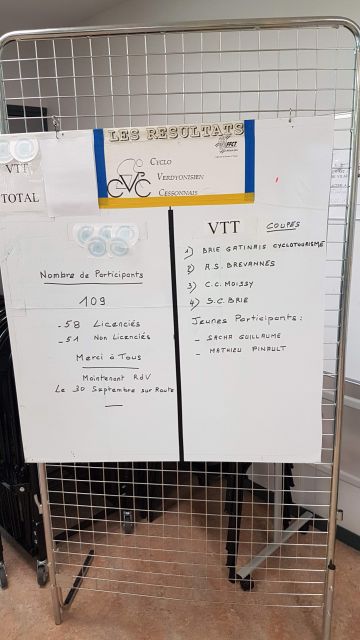 LES RESULTATS
VTT
TOTAL
FFCT
CYCLO
VERDYONISIEN
CESSONNAIS
CVC
Nombre de Participants
109
- 58 Licenciés
- 51 Non Licenciés
Merci à Tous
Maintenant RdV
Le 30 Septembre sur Route
VTT COUPES
1) BRIE GATINAIS CYCLOTOURISME
2) R.S. BREVANNES
3) C.C. MOISSY
4) S.C. BRIE
Jeunes Participants :
- SACHA GUILLAUME
- MATHIEU PINAULT